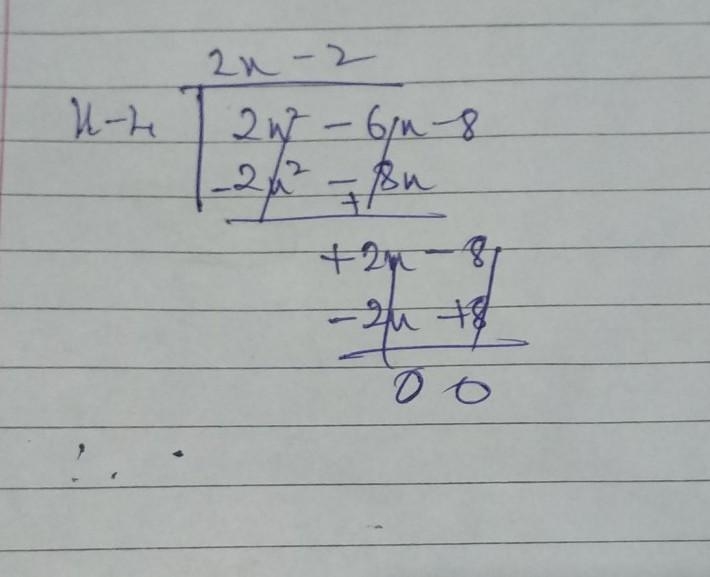 2x - 2
x-4 2x² - 6x - 8
-2x² - 8x
+
+2x - 8
-2x +8
0 0
∴ .